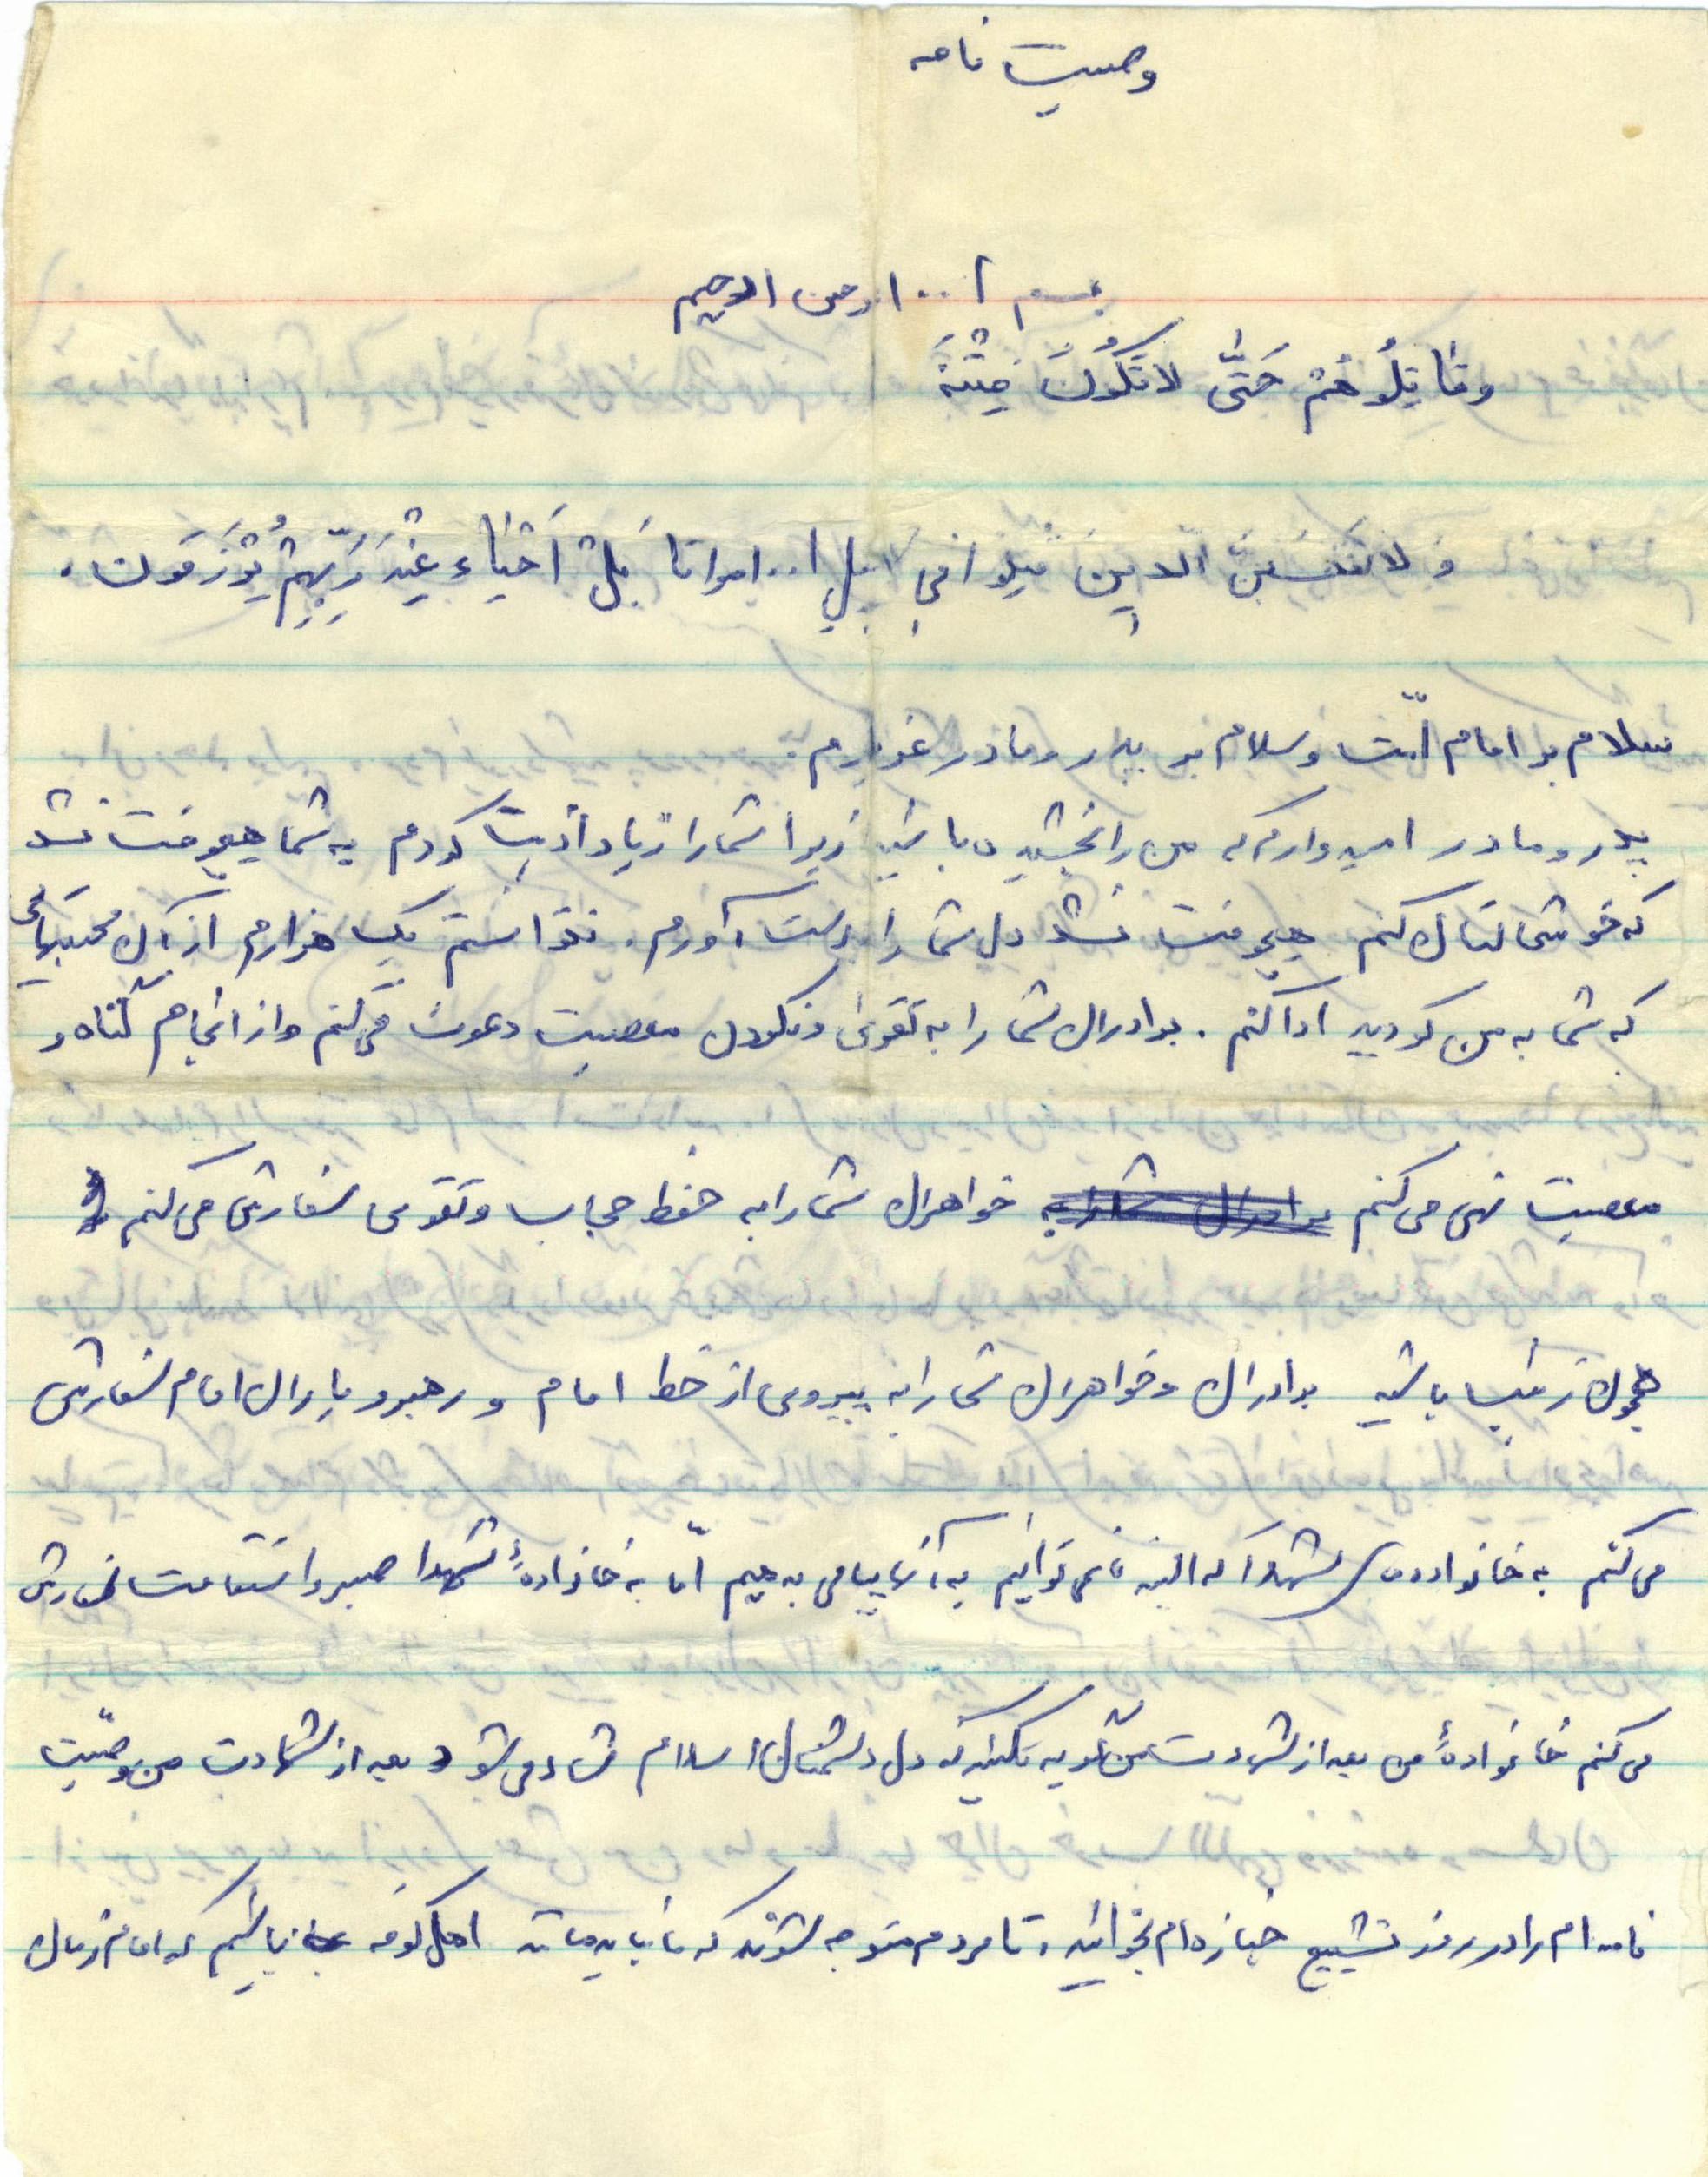 وصیت نامه
بسم ا... الرحمن الرحیم
وقاتِلُوهُمْ حَتّی لاتَکُونَ فِتْنَةَ
وَلا تَحْسَبَنَّ الَّذینَ قُتِلوا فی سبیل ا... امواتا بَلْ اَحْیٰاء عِنْدَ رَبِّهِمْ یُرْزَقون.
سلام بر امام امّت و سلام بر پدر و مادر عزیزم.
پدر و مادر امیدوارم که من را بخشیده باشید زیرا شما را زیاد اذیت کردم به شما هیچوقت نشد
که خوشحالتان کنم هیچوقت نشد دل شما را بدست آورم. نتوانستم یک هزارم از آن محبتهائی
که شما به من کردید ادا کنم. برادران شما را به تقوی و نکردن معصیت دعوت می کنم و از انجام گناه و
معصیت نهی می کنم خواهران شما را به حفظ حجاب و تقوی سفارش می کنم
همچون زینب باشید برادران و خواهران شما را به پیروی از خط امام و رهبر و یاران امام سفارش
می کنم به خانواده شهدا که البته ما نمی توانیم به آنها پیامی بدهیم امّا به خانوادهٔ شهدا صبر و استقامت سفارش
می کنم خانوادهٔ من بعد از شهادت من گریه نکنید که دل دشمنان اسلام شاد می شود بعد از شهادت من وصیّت
نامه ام را در روز تشییع جنازه ام بخوانید، تا مردم متوجه شوند که ما نباید مانند اهل کوفه باشیم که امام زمان